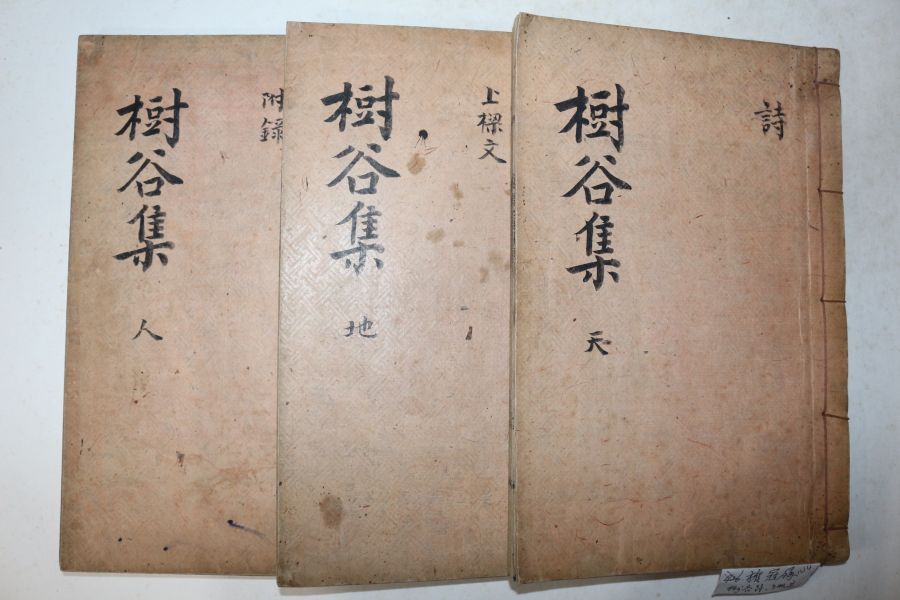 樹谷集 天
詩
樹谷集 地
上樑文
樹谷集 人
附錄